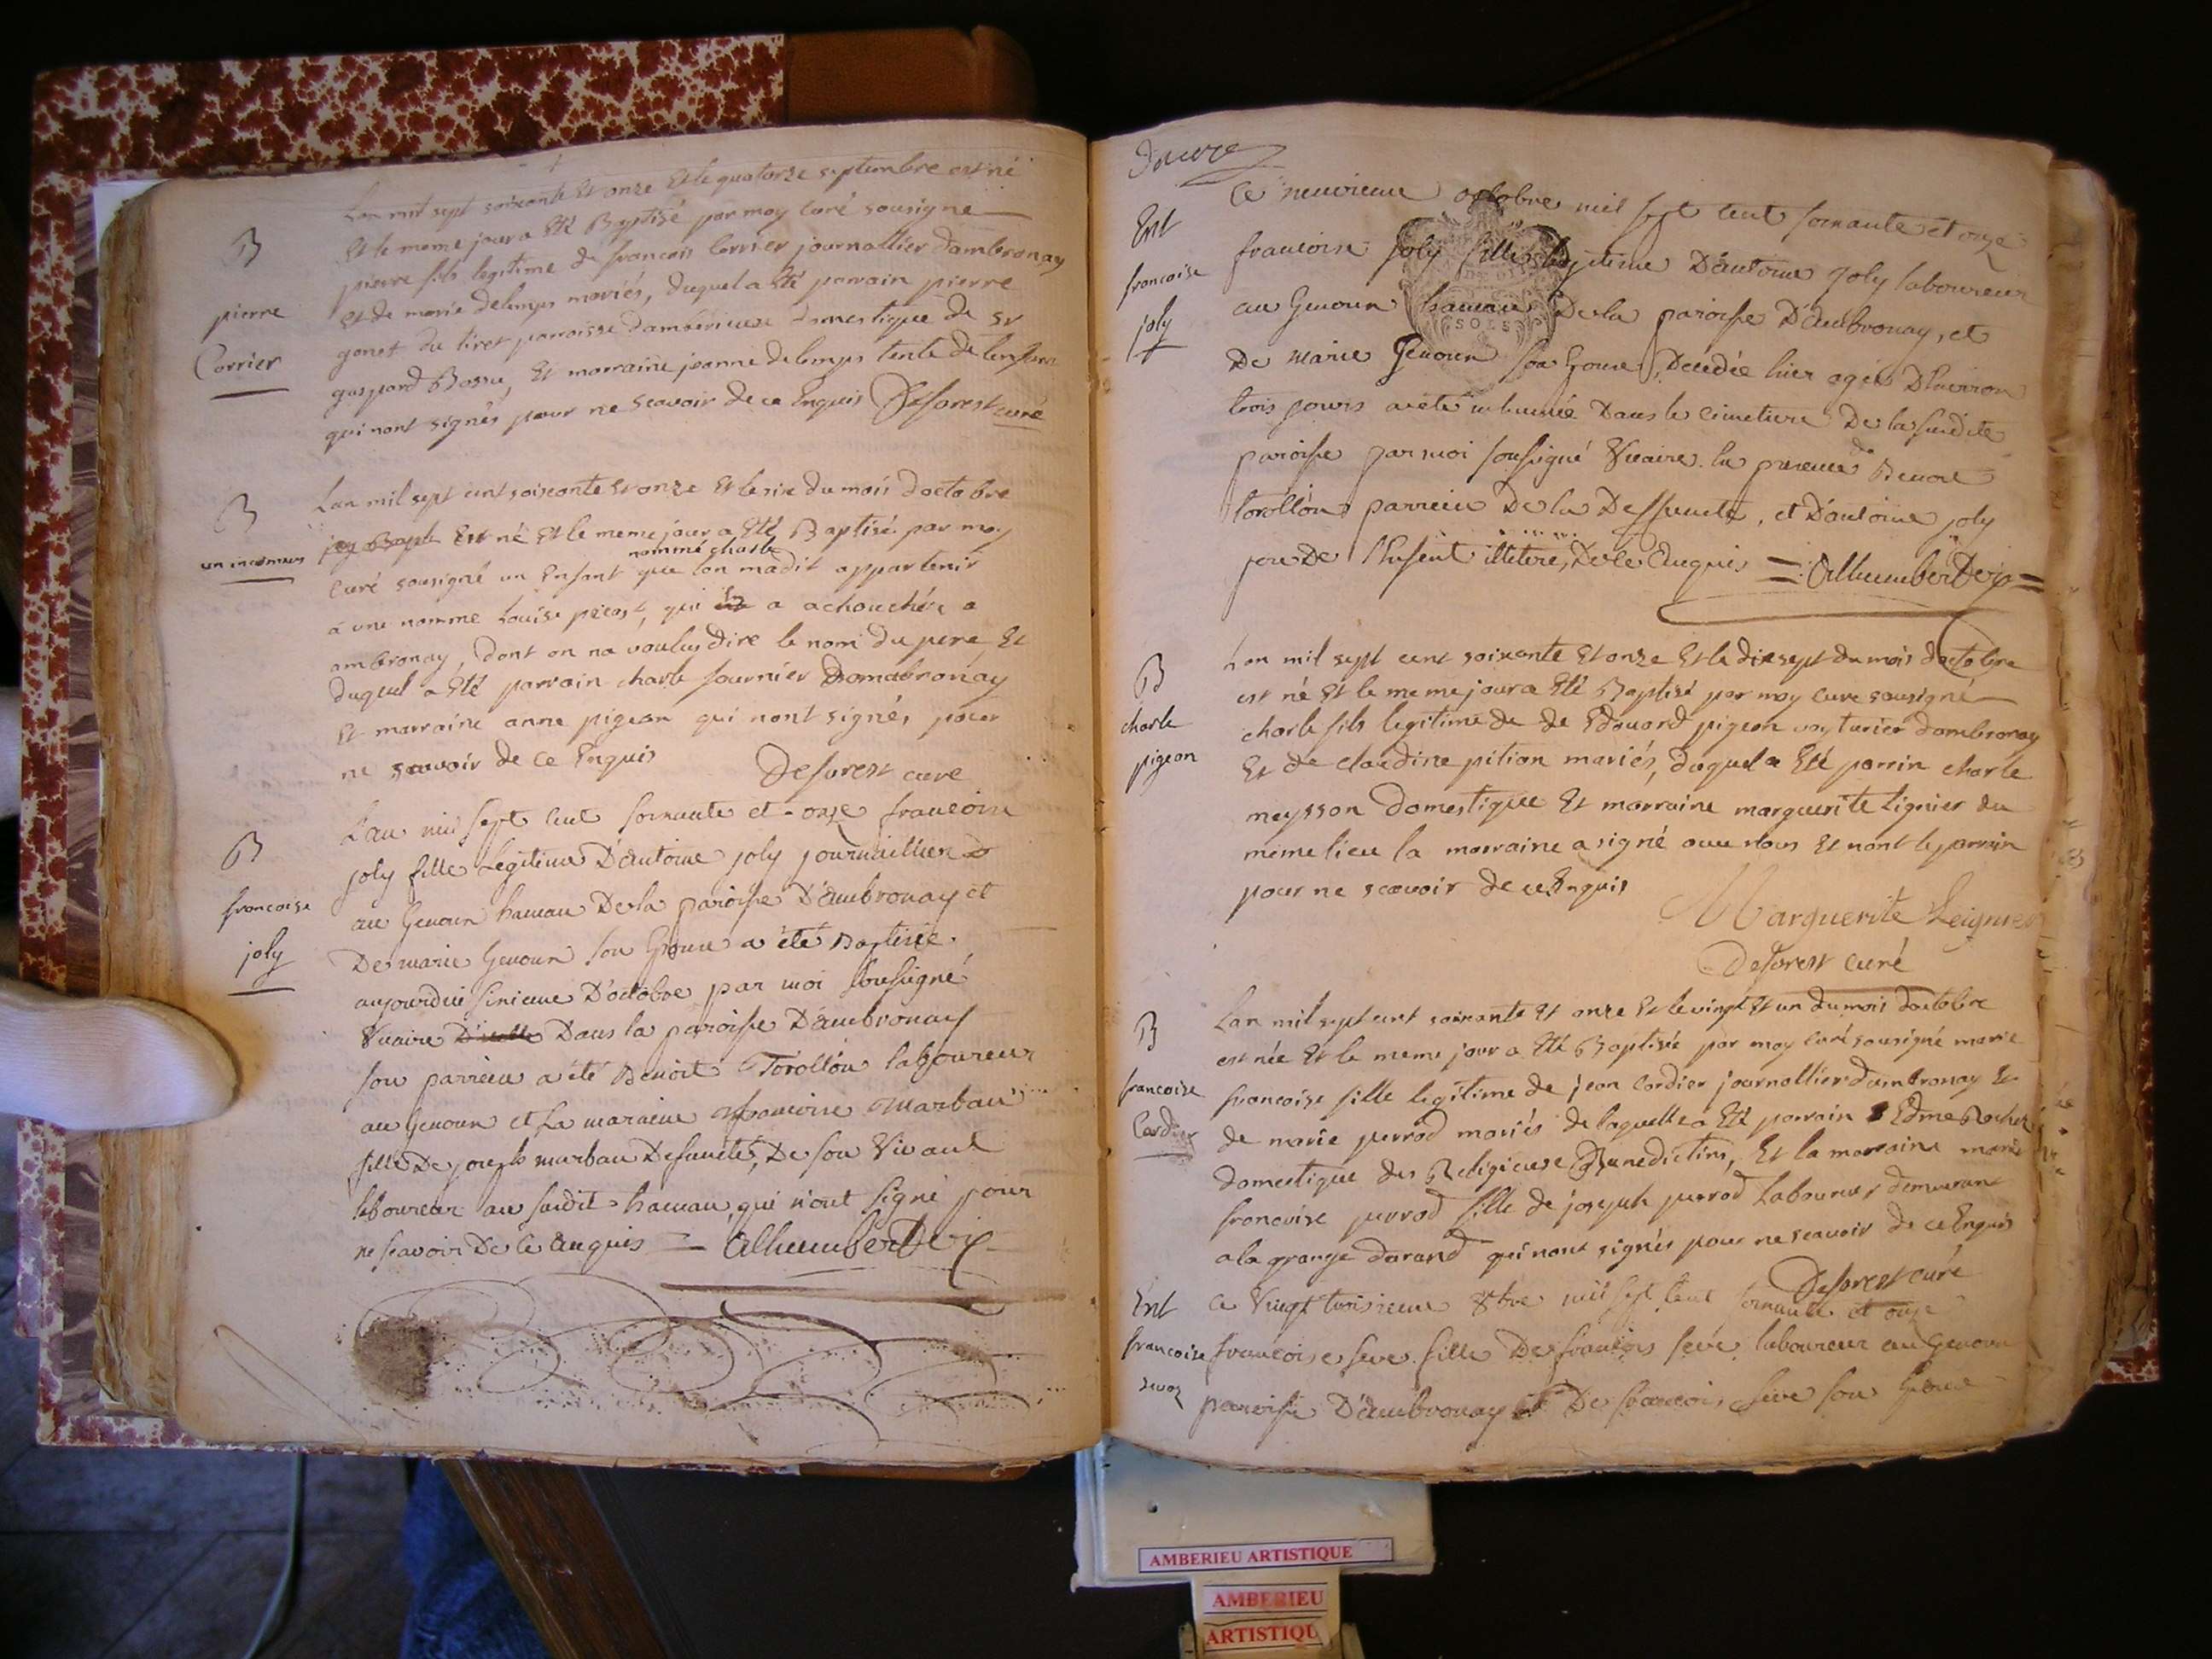 B
pierre
Corrier
Lan mil sept soixante Et onze Et le quatorze septembre est né
Et le meme jour a Eté Baptisé par moy curé sousigné
pierre fils legitime de francois Corrier journallier dambronay
Et de marie delemps mariés, duquel a Eté parrain pierre
gonet du tiret parroisse dambérieux domestique de sr
gaspard Bossu, Et marraine jeanne delemps tente de lenfant
qui nont signés pour ne scavoir de ce Enquis Deforest curé
B
un inconnus
Lan mil sept cent soixante Et onze Et le six du mois doctobre
Est né Et le meme jour a Eté Baptisé par moy
nommé charle
curé sousigné un Enfant que lon madit appartenir
a une nomme Louise , qui a achouchée a
ambronay, dont on na voulus dire le nom du pere, Et
duquel a Eté parrain charle fournier Dramabronay
Et marraine anne pigeon qui nont signés, pour
ne scavoir de ce Enquis Deforest curé
B
francoise
joly
L'an mil sept cent soixante et onze francoise
joly fille Legitime D'Antoine joly journaillier
au Genoun hameau De la paroisse D'Ambronay et
De marie Genoun son Epouse a été Baptisée
aujourdui sixieme D'octobre par moi soussigné
Vicaire Dans la paroisse D'Ambronay
son parrein a été Benoit Torollon laboureur
au Genoun et La maraine francoise Marbau
fille De joseph marbau Defunct, De son Vivant
laboureur au susdit hameau, qui n'ont signé pour
ne scavoir De ce Enquis = Alhumbert Vic
Douze
SOLS
Ent
francoise
joly
Ce neuvieme octobre mil sept cent soixante et onze
francoise joly fille legitime D'Antoine Joly laboureur
au Genoun hameau De la paroisse D'Ambronay, et
De marie Genoun son Epouse, Decédée hier agée D'Environ
trois jours a eté inhumée Dans le cimetiere De la susdite
paroisse par moi soussigné Vicaire. En presence de Benoit
torollon parrein De la Deffuncte, et D'antoine joly
pere De l'Enfent illeteré, De ce Enquis = Alhumbert Vic =
B
charle
pigeon
Lan mil sept cent soixante Et onze Et le dix sept du mois doctobre
est né Et le meme jour a Eté Baptisé par moy curé sousigné
charle fils legitime de de Edouard pigeon voyturier dambronay
Et de claudine pition mariés, duquel a Eté parrin charle
neysson domestique Et marraine marguerite Lignier du
meme lieu la marraine a signé avec nous Et nont le parrin
pour ne scavoir de ce Enquis
Marguerite Leignier
Deforest curé
B
francoise
Cordier
Lan mil sept cent soixante Et onze Et le vingt Et un du mois doctobre
est née Et le meme jour a Eté Baptisée par moy curé sousigné marie
francoise fille legitime de jean Cordier journallier dambronay Et
de marie perrod mariés de laquelle a Eté parrain Edme Rochet
domestique des Religieuse Benedictins, Et la marraine marie
francoise perrod fille de joseph perrod Laboureur demeurant
a la grange darand qui nont signés pour ne scavoir de ce Enquis
Deforest curé
Ent
francoise
sevoz
Ce Vingt troisieme 8bre mil sept cent soixante et onze
francoise seve fille De francois seve laboureur au Genoun
paroisse D'Ambronay et De francoise seve son Epouse
AMBERIEU ARTISTIQUE
AMBERIEU
ARTISTIQU